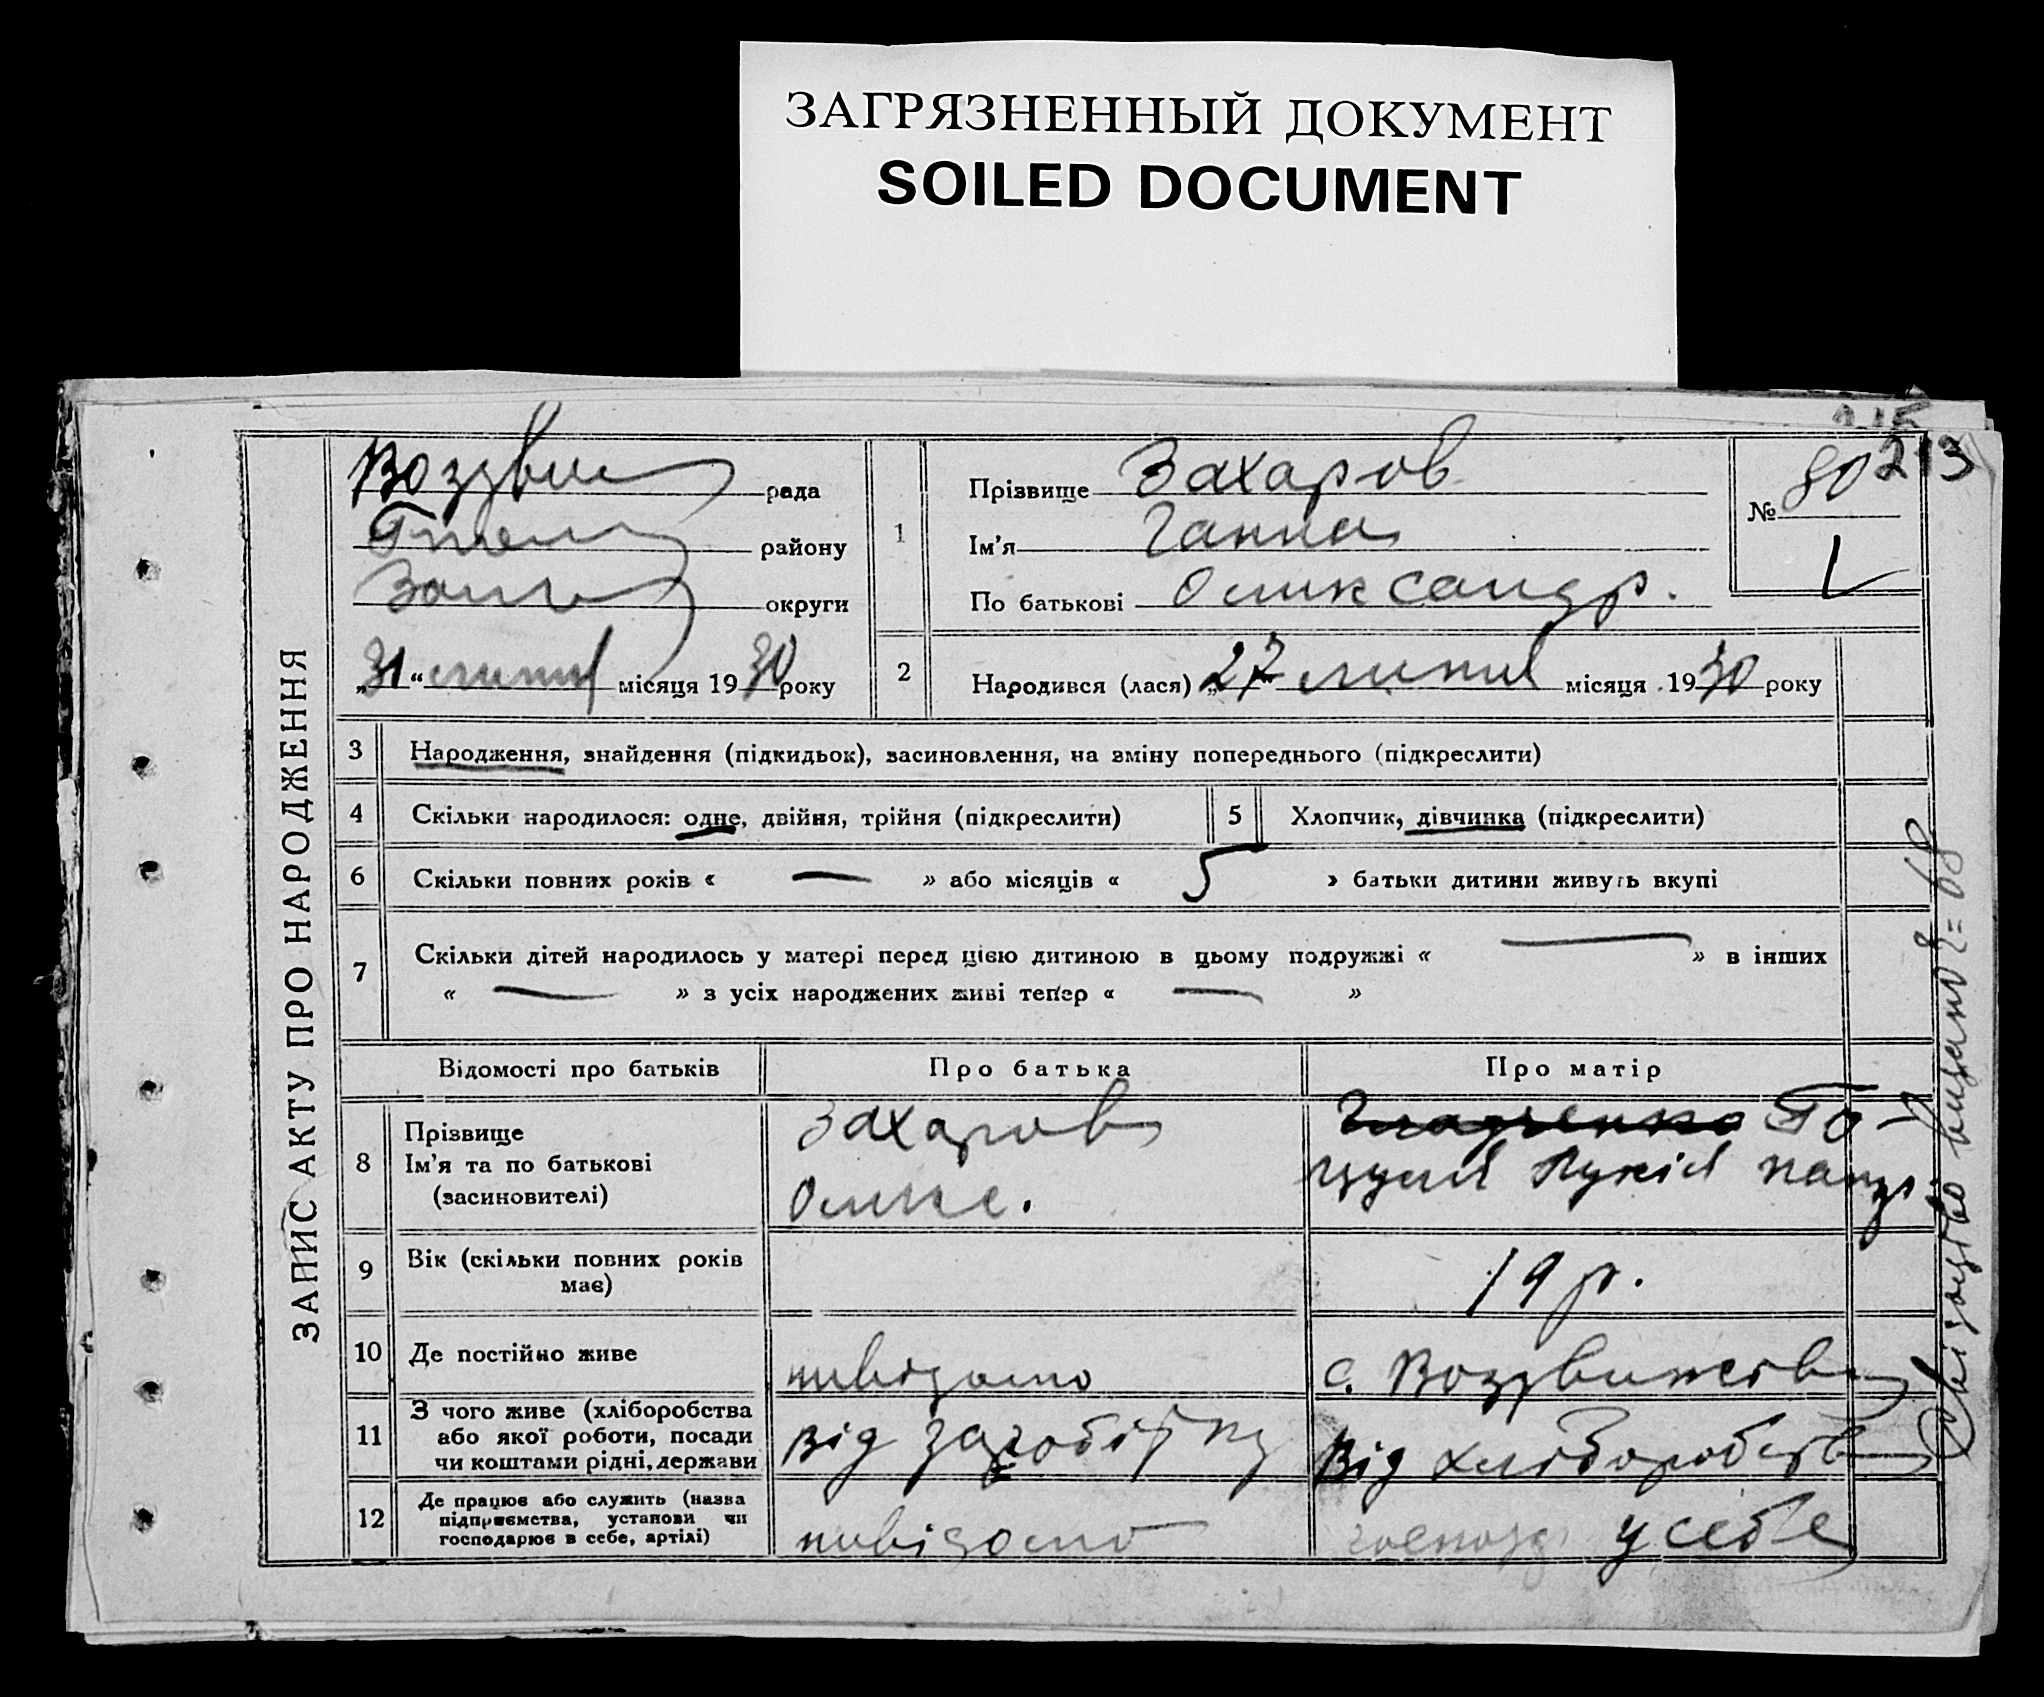 ЗАГРЯЗНЕННЫЙ ДОКУМЕНТ
SOILED DOCUMENT
213
ЗАПИС АКТУ ПРО НАРОДЖЕННЯ
Воздвиж рада
району
округи
„31“ липня місяця 1930 року
1
Прізвище Захаров
Ім'я Ганна
По батькові Олександр.
№ 80
2
Народився (лася) „27“ липня місяця 1930 року
3 Народження, знайдення (підкидьок), засиновлення, на зміну попереднього (підкреслити)
4 Скільки народилося: одне, двійня, трійня (підкреслити) 5 Хлопчик, дівчинка (підкреслити)
6 Скільки повних років « — » або місяців « 5 » батьки дитини живуть вкупі
7 Скільки дітей народилось у матері перед цією дитиною в цьому подружжі « — » в інших
« — » з усіх народжених живі тепер « — »
Відомості про батьків Про батька Про матір
8 Прізвище
Ім'я та по батькові
(засиновителі)
Захаров
Олекс.
Лукія
9 Вік (скільки повних років
має)
19 р.
10 Де постійно живе невідомо с. Воздвиженськ
11 З чого живе (хліборобства
або якої роботи, посади
чи коштами рідні, держави
від заробітку від хліборобств
12 Де працює або служить (назва
підприємства, установи чи
господарює в себе, артілі)
невідомо господ у себе
Свідоцтво видано № 68